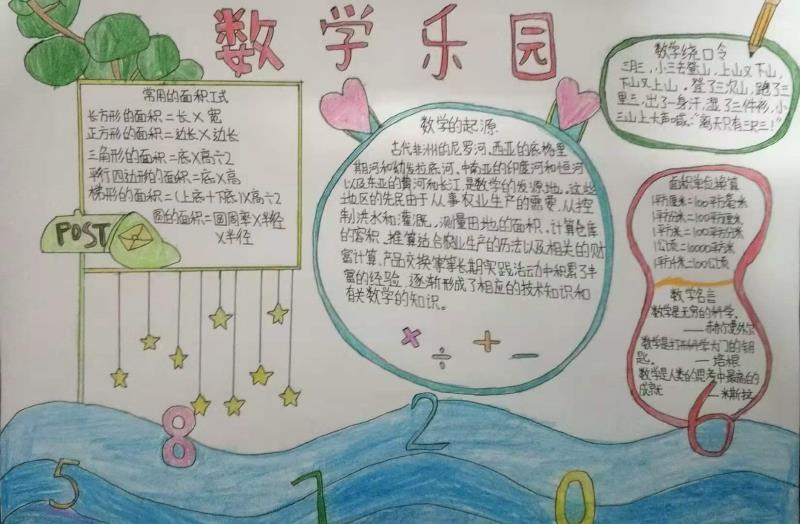 数学乐园
常用的面积工式
长方形的面积=长×宽
正方形的面积=边长×边长
三角形的面积=底×高÷2
平行四边形的面积=底×高
梯形的面积=(上底+下底)×高÷2
圆的面积=圆周率×半径
×半径
POST
数学的起源
古代非洲的尼罗河、西亚的底格里
斯河和幼发拉底河、中南亚的印度河和恒河
以及东亚的黄河和长江,是数学的发源地,这些
地区的先民由于从事农业生产的需要,从控
制洪水和灌溉,测量田地的面积、计算仓库
的容积、推算适合农业生产的历法以及相关的财
富计算、产品交换等等长期实践活动中积累了丰
富的经验,逐渐形成了相应的技术知识和
有关数学的知识。
× ÷ + −
数学绕口令
三月三,小三去登山,上山又下山,
下山又上山。登了三次山,跑了三
里三,出了一身汗,湿了三件衫,小
三山上大声喊:“离天只有三尺三!”
面积单位换算
1平方厘米=100平方毫米
1平方分米=100平方厘米
1平方米=100平方分米
1公顷=10000平方米
1平方千米=100公顷
数学名言
数学是无穷的科学。
——赫尔曼外尔
数学是打开科学大门的钥
匙。 ——培根
数学是人类的思考中最高的
成就 ——米斯拉
5 8 7 2 0 6